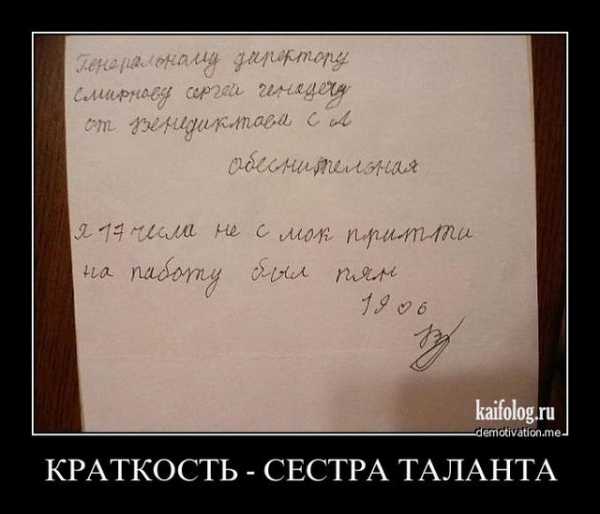 Генеральному директору
Смирнову сергей генадецу
от Венедиктова С Л
обеснительная
Я 17 числа не с мок притти
на работу был пян
19 06
kaifolog.ru
demotivation.me
КРАТКОСТЬ - СЕСТРА ТАЛАНТА